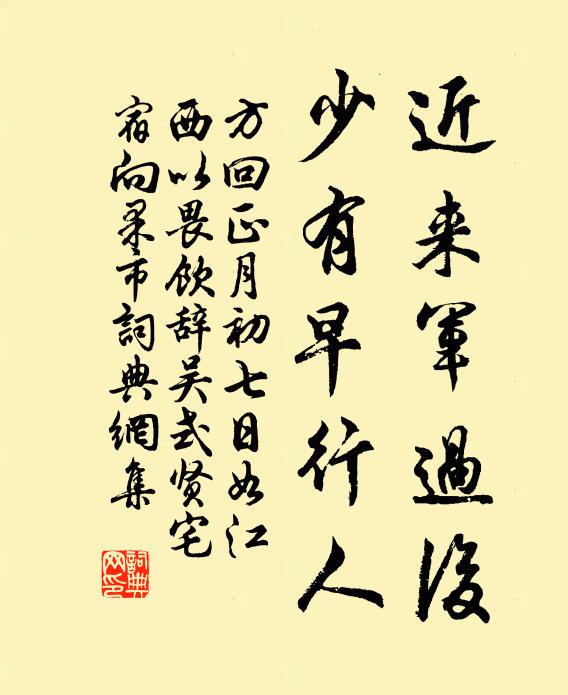 近来軍過後
少有早行人
方回正月初七日如江
西以畏饮辞吴式贤宅
宿向市詞典網集
詞典网印